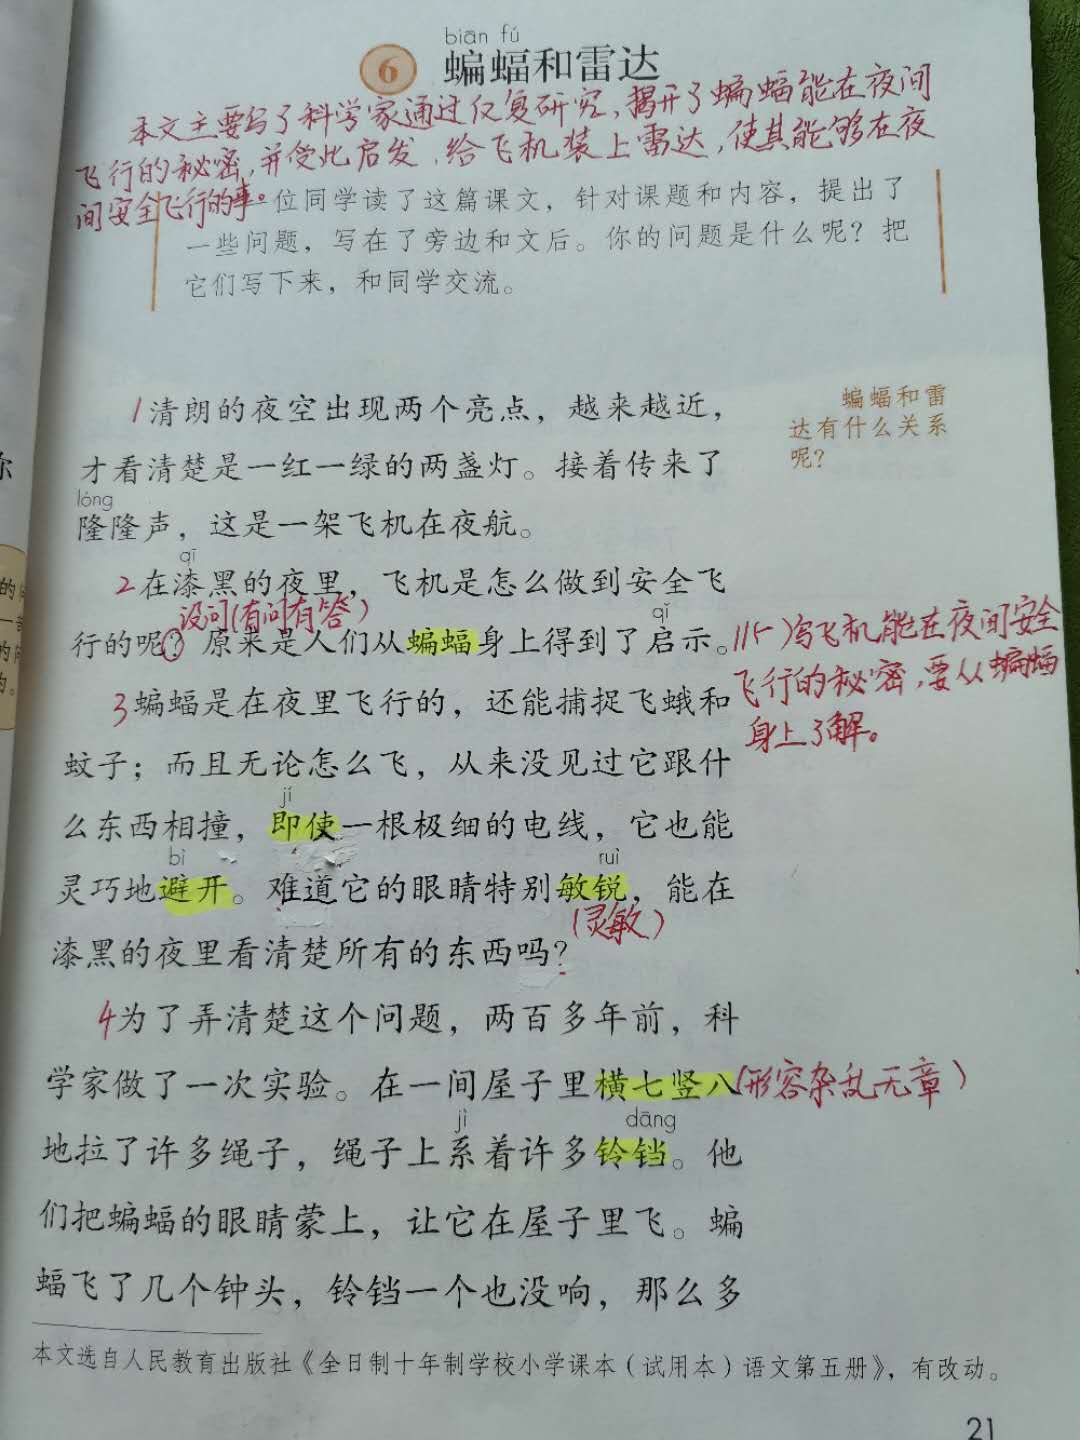 biān fú
6 蝙蝠和雷达
本文主要写了科学家通过反复研究，揭开了蝙蝠能在夜间
飞行的秘密，并受此启发，给飞机装上雷达，使其能够在夜
间安全飞行的事。
位同学读了这篇课文，针对课题和内容，提出了
一些问题，写在了旁边和文后。你的问题是什么呢？把
它们写下来，和同学交流。
1清朗的夜空出现两个亮点，越来越近，
才看清楚是一红一绿的两盏灯。接着传来了
lóng
隆隆声，这是一架飞机在夜航。
蝙蝠和雷
达有什么关系
呢？
qī
2在漆黑的夜里，飞机是怎么做到安全飞
设问（有问有答）
qǐ
行的呢？原来是人们从蝙蝠身上得到了启示。
写飞机能在夜间安全
飞行的秘密，要从蝙蝠
身上了解。
3蝙蝠是在夜里飞行的，还能捕捉飞蛾和
蚊子；而且无论怎么飞，从来没见过它跟什
jí
么东西相撞，即使一根极细的电线，它也能
bì ruì
灵巧地避开。难道它的眼睛特别敏锐，能在
（灵敏）
漆黑的夜里看清楚所有的东西吗？
4为了弄清楚这个问题，两百多年前，科
学家做了一次实验。在一间屋子里横七竖八
（形容杂乱无章）
jì dāng
地拉了许多绳子，绳子上系着许多铃铛。他
们把蝙蝠的眼睛蒙上，让它在屋子里飞。蝙
蝠飞了几个钟头，铃铛一个也没响，那么多
本文选自人民教育出版社《全日制十年制学校小学课本（试用本）语文第五册》，有改动。
21